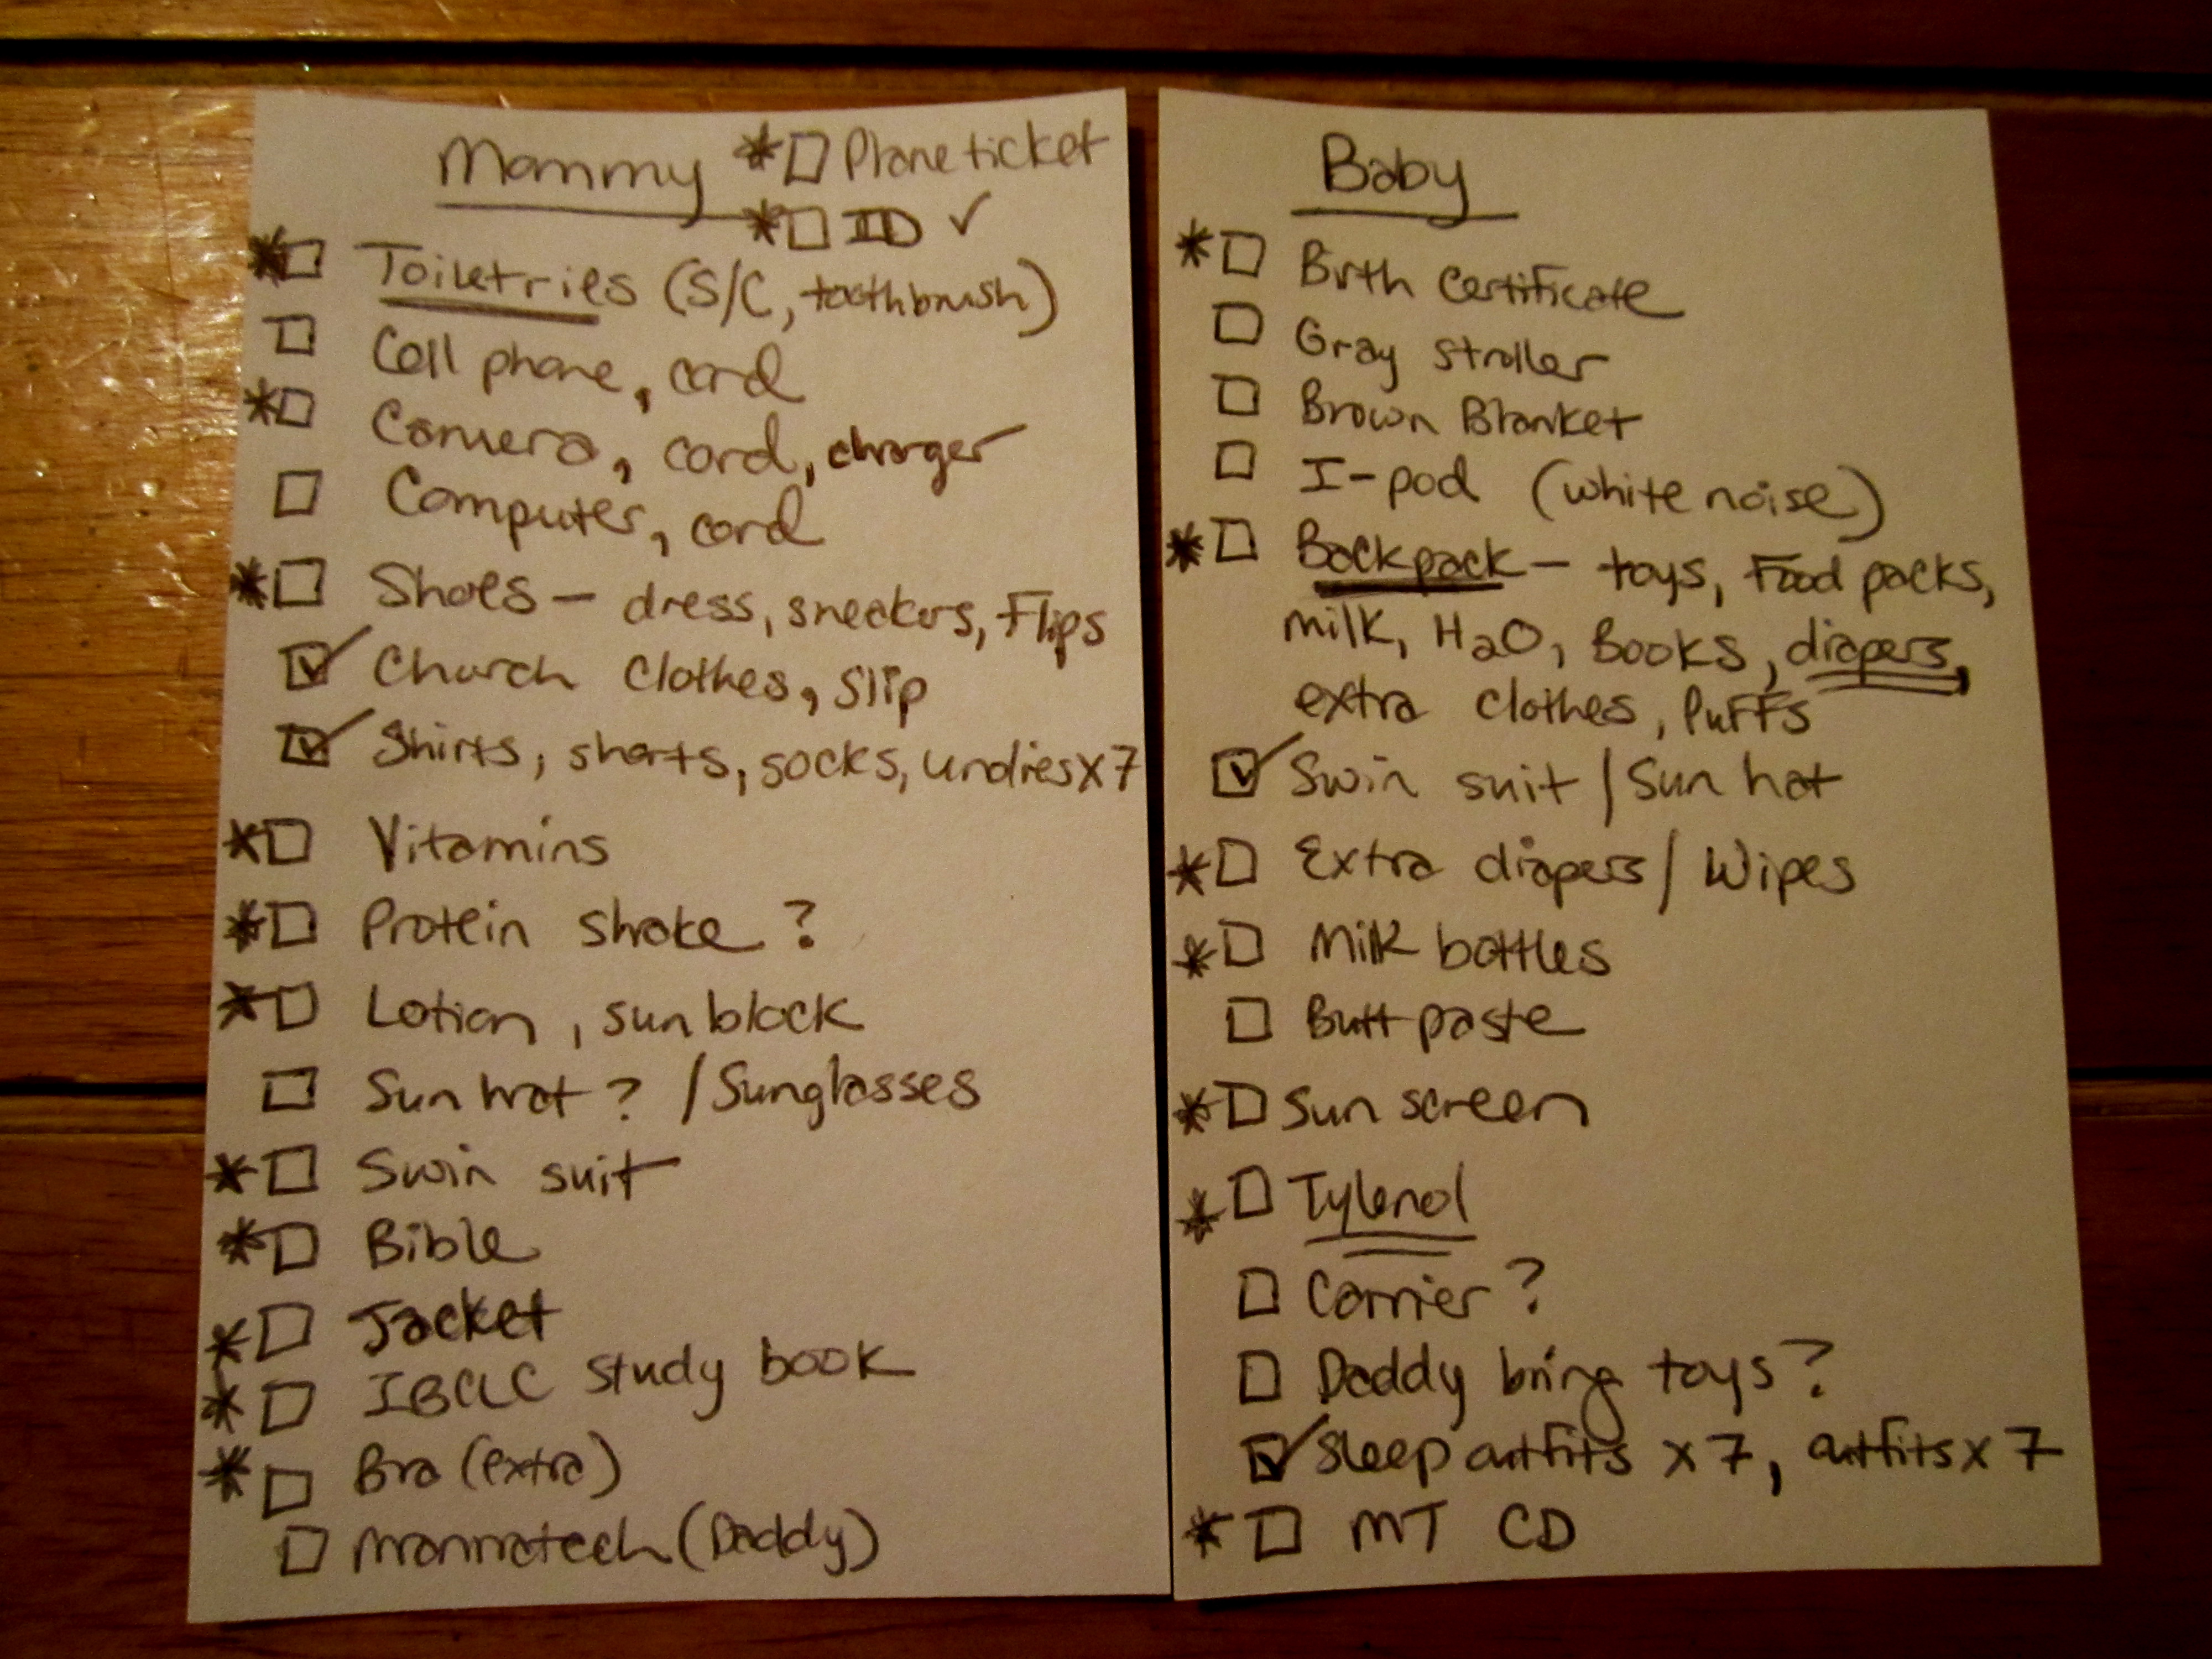 Mommy
* □ Plane ticket
* □ ID ✓
* □ Toiletries (S/C, toothbrush)
□ Cell phone, cord
* □ Camera, cord, charger
□ Computer, cord
* □ Shoes - dress, sneakers, Flips
☑ Church Clothes, slip
☑ Shirts, shorts, socks, undies x 7
* □ Vitamins
* □ Protein shake ?
* □ Lotion, sun block
□ Sun hat ? / Sunglasses
* □ Swim suit
* □ Bible
* □ Jacket
* □ IBCLC study book
* □ Bra (extra)
□ (Daddy)
Baby
* □ Birth Certificate
□ Gray stroller
□ Brown Blanket
□ I-pod (white noise)
* □ Backpack - toys, Food packs,
milk, H2O, Books, diapers,
extra clothes, Puffs
☑ Swim suit / Sun hat
* □ Extra diapers / Wipes
* □ Milk bottles
□ Butt paste
* □ Sun screen
* □ Tylenol
□ Carrier ?
□ Daddy bring toys ?
☑ Sleep outfits x 7, outfits x 7
* □ MT CD